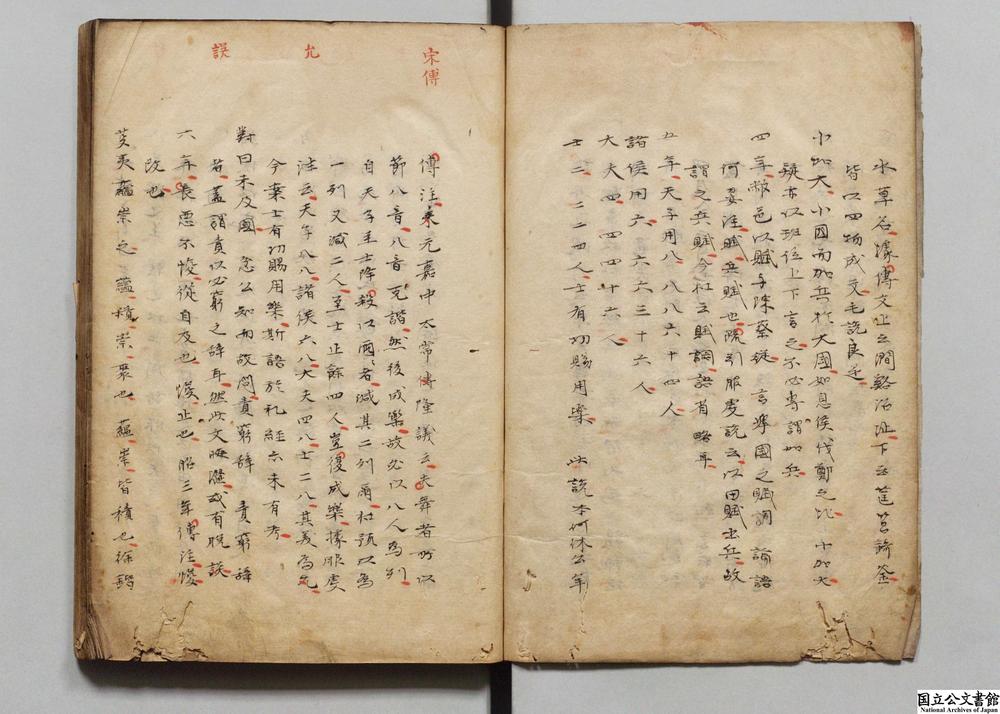 水草名據傳文止之澗谿沼沚下云筐筥錡釜
皆以四物成文毛説良是
小加大 小國而加兵於大國如息侯伐鄭之比 小加大
疑亦以班位上下言之不必專謂加兵
四年敝邑以賦与陳蔡從 言擧國之賦調 論語
何晏注賦兵賦也疏引服虔説云以田賦出兵故
謂之兵賦今杜云賦調語省略耳
五年天子用八 八八六十四人
諸侯用六 六六三十六人
大夫四 四四十六人
士二 二二四人士有功賜用樂 此説本何休公羊
傳注宋元嘉中太常傅隆議云夫舞者所以
節八音八音克諧然後成樂故必以八人為列
自天子至士降殺以兩々者減其二列爾杜預以為
一列又減二人至士止餘四人豈復成樂據服虔
注云天子八八諸侯六八大夫四八士二八其義為允
今案士有功賜用樂斯語於礼經亦未有考
對曰未及國 忿公知而故問責窮辭 責窮辭
者蓋謂責以必窮之辭耳然此文晦澀或有脱誤
六年長惡不悛從自及也 悛止也 昭三年傳注悛
改也
芟夷蘊崇之 蘊積崇聚也 蘊崇皆積也徐鍇
宋傅
允
誤
国立公文書館
National Archives of Japan